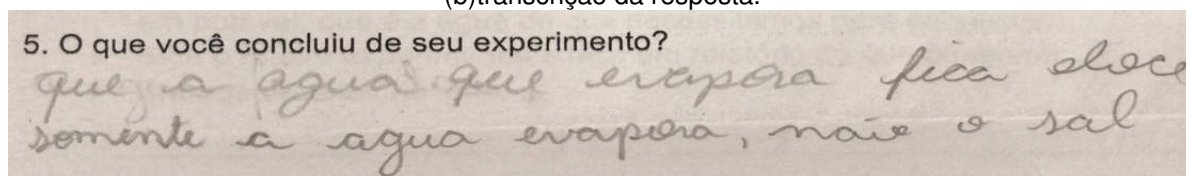 (b)transcrição da resposta.
5. O que você concluiu de seu experimento?
que a agua que evapora fica doce
somente a agua evapora, não o sal